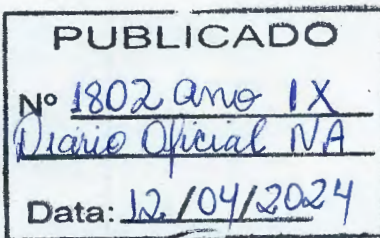 PUBLICADO
Nº 1802 ano IX
Diário Oficial NA
Data: 12/04/2024